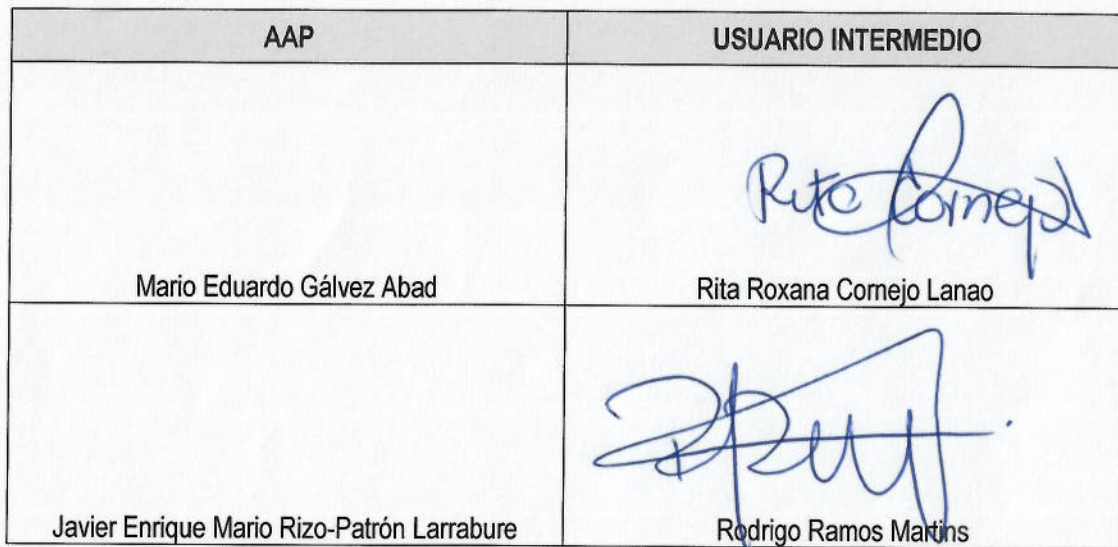 AAP
USUARIO INTERMEDIO
Rita Cornejo
Mario Eduardo Gálvez Abad
Rita Roxana Cornejo Lanao
Javier Enrique Mario Rizo-Patrón Larrabure
Rodrigo Ramos Martins